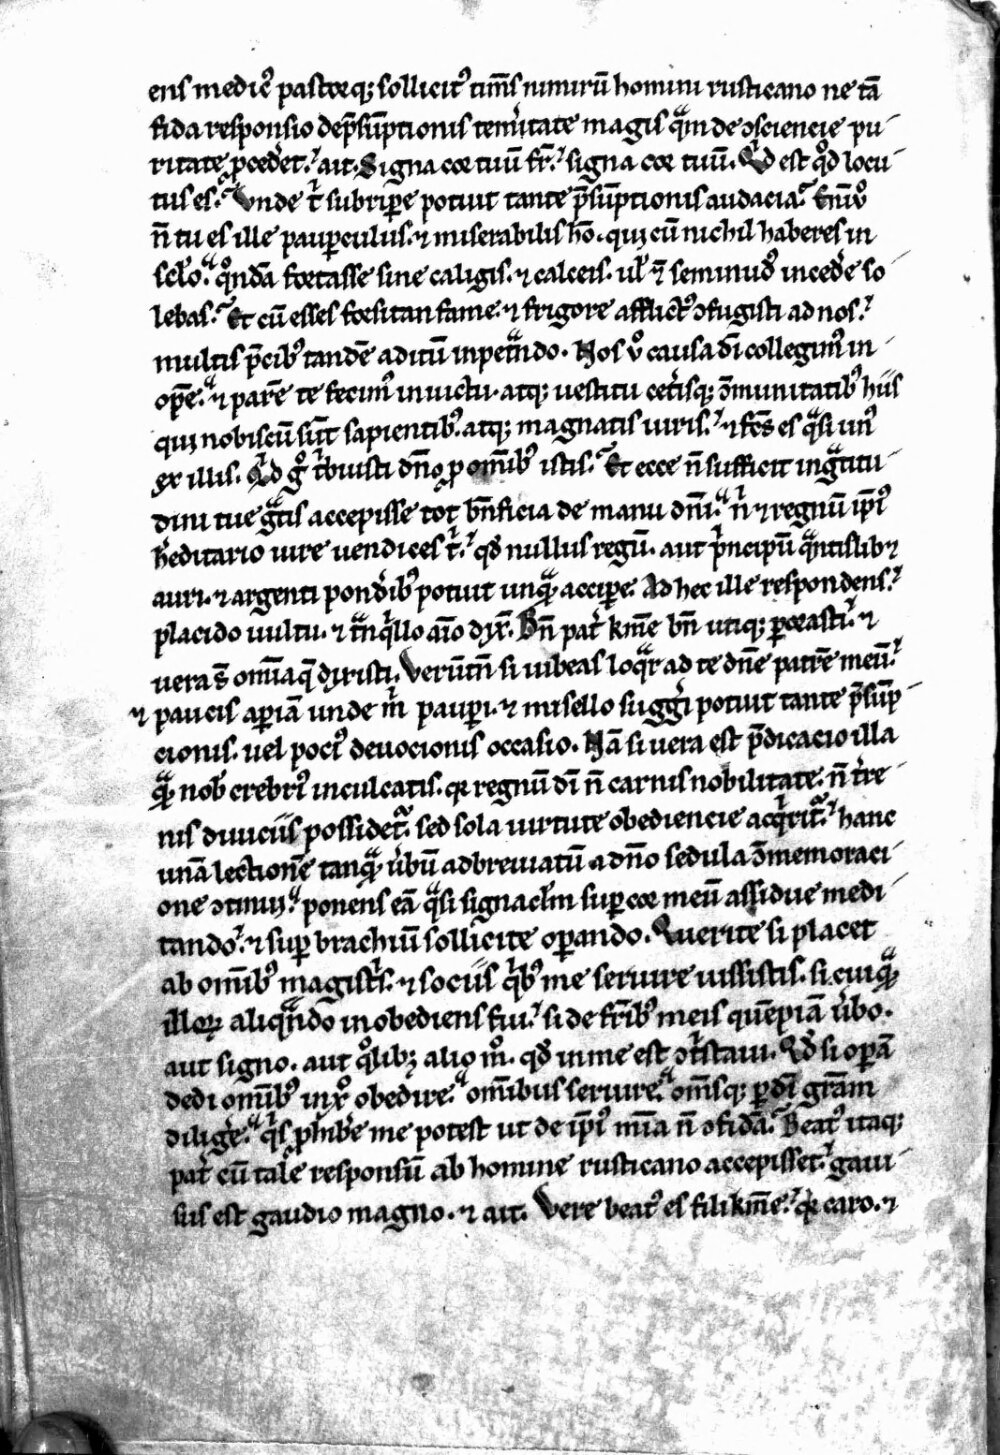 ens medic᷒ pastorq; sollicit᷒ tim̄s nimirū homini rusticano ne tā
fida responsio dep̄sūptionis tem̓itate magis qͣm de ꝯsciencie pu
ritate ꝓced̓et. ait. Signa cor tuū fr̄. signa cor tuū. Qͥd est qͦd locu
tus es. Vnde tͥ subriꝑe potuit tante p̄sūptionis audacia. Enīvͦ
n̄ tu es ille pauꝑculus. ⁊ miserabilis hō. qui cū nichil haberes in
sclō. qͦndā fortasse sine caligis. ⁊ calceis. ul̓ ⁊̄ seminud᷒ inced̓e so
lebas. Et cū esses forsitan fame. ⁊ frigore afflict᷒ ꝯfugisti ad nos.
multis p̄cib᷒ tandē aditū inpetͣndo. Nos vͦ causa dī collegim᷒ in
oꝑe. ⁊ parē te fecim᷒ in uictu. atq; uestitu cet̓isq; ꝯ̄munitatib᷒ hiis
qui nobiscū sūt sapientib᷒. atq; magnatis uiris. ⁊ fc̄s es qͣsi un᷒
ex illis. Qͥd gͦ tͥbuisti dn̄o ꝓ om̄ib᷒ istis. Et ecce n̄ sufficit ingͣtitu
dini tue gͣtis accepisse tot bn̄ficia de manu dn̄i. nͥ ⁊ regnū ip̄i᷒
h̓editario iure uendices tͥ. qd̓ nullus regū. aut pͥncipū qͣntislib⁊
auri. ⁊ argenti pond̓ib᷒ potuit unqͣ acciꝑe. Ad hec ille respondens.
placido uultu. ⁊ tͣnqͥllo aīo dix̄. Bn̄ pat̓ km̄e bn̄ utiq; ꝑorasti. ⁊
uera s̄ om̄ia q̄ dixisti. Verūtn̄ si iubeas loqͣr ad te dn̄e patrē meū.
⁊ paucis aꝑiā unde m̓ pauꝑi. ⁊ misello sugg̓i potuit tante p̄sūp
cionis. uel poci᷒ deuocionis occasio. Nā si uera est p̄dicacio illa
qͣ nob̓ crebri᷒ inculcatis. qꝛ regnū dī n̄ carnis nobilitate. n̄ t̓re
nis diuiciis possidetͬ. sed sola uirtute obediencie acqͥritͬ. hanc
unā lectionē tanqͣ u̓bū adbreuiatū a dn̄o sedula ꝯ̄memoraci
one ꝯtinui. ponens eā qͣsi signacl̄m suꝑ cor meū assidue medi
tando. ⁊ suꝑ brachiū sollicite oꝑando. Querite si placet
ab om̄ib᷒ magistͥs. ⁊ sociis qͥb᷒ me seruire iussistis. si cuiqͣ
illoꝝ aliqͣndo inobediens fui. si de fr̄ib᷒ meis quēpiā u̓bo.
aut signo. aut qͦlib; alio mͦ. qd̓ in me est ꝯtͥstaui. Qd̓ si oꝑā
dedi om̄ib᷒ in xͦ obedire. omnibus seruire. om̄sq; ꝑ dī grām
dilig̓e. qͥs ꝓhib̓e me potest ut de ip̄i᷒ mīa n̄ ꝯfidā. Beat᷒ itaq;
pat̓ cū tale responsū ab homine rusticano accepisset. gaui
sus est gaudio magno. ⁊ ait. Vere beat᷒ es fili km̄e. qͥ caro. ⁊